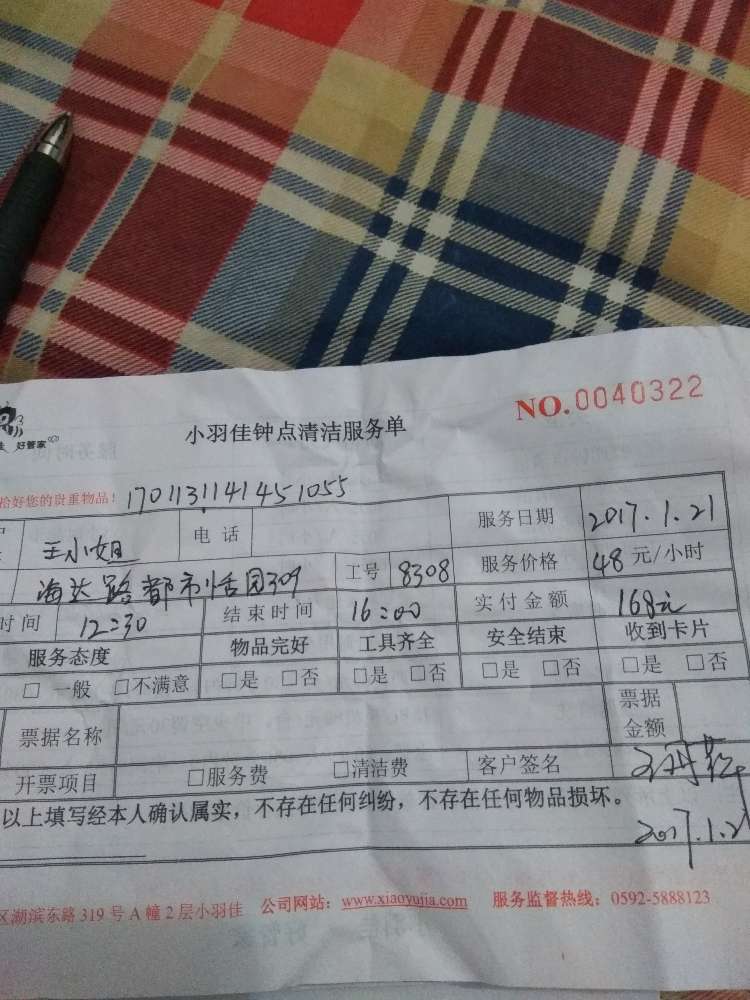 NO.0040322
小羽佳钟点清洁服务单
好管家
拾好您的贵重物品！ 170113114145 1055
王小姐 电话 服务日期 2017.1.21
海达路都市恬园309 工号 8308 服务价格 48元/小时
时间 12:30 结束时间 16:00 实付金额 168元
服务态度 物品完好 工具齐全 安全结束 收到卡片
□ 一般 □不满意 □是 □否 □是 □否 □是 □否 □是 □否
票据名称 票据金额
开票项目 □服务费 □清洁费 客户签名
以上填写经本人确认属实，不存在任何纠纷，不存在任何物品损坏。
2017.1.21
区湖滨东路 319 号 A 幢 2 层小羽佳 公司网站：www.xiaoyujia.com 服务监督热线：0592-5888123